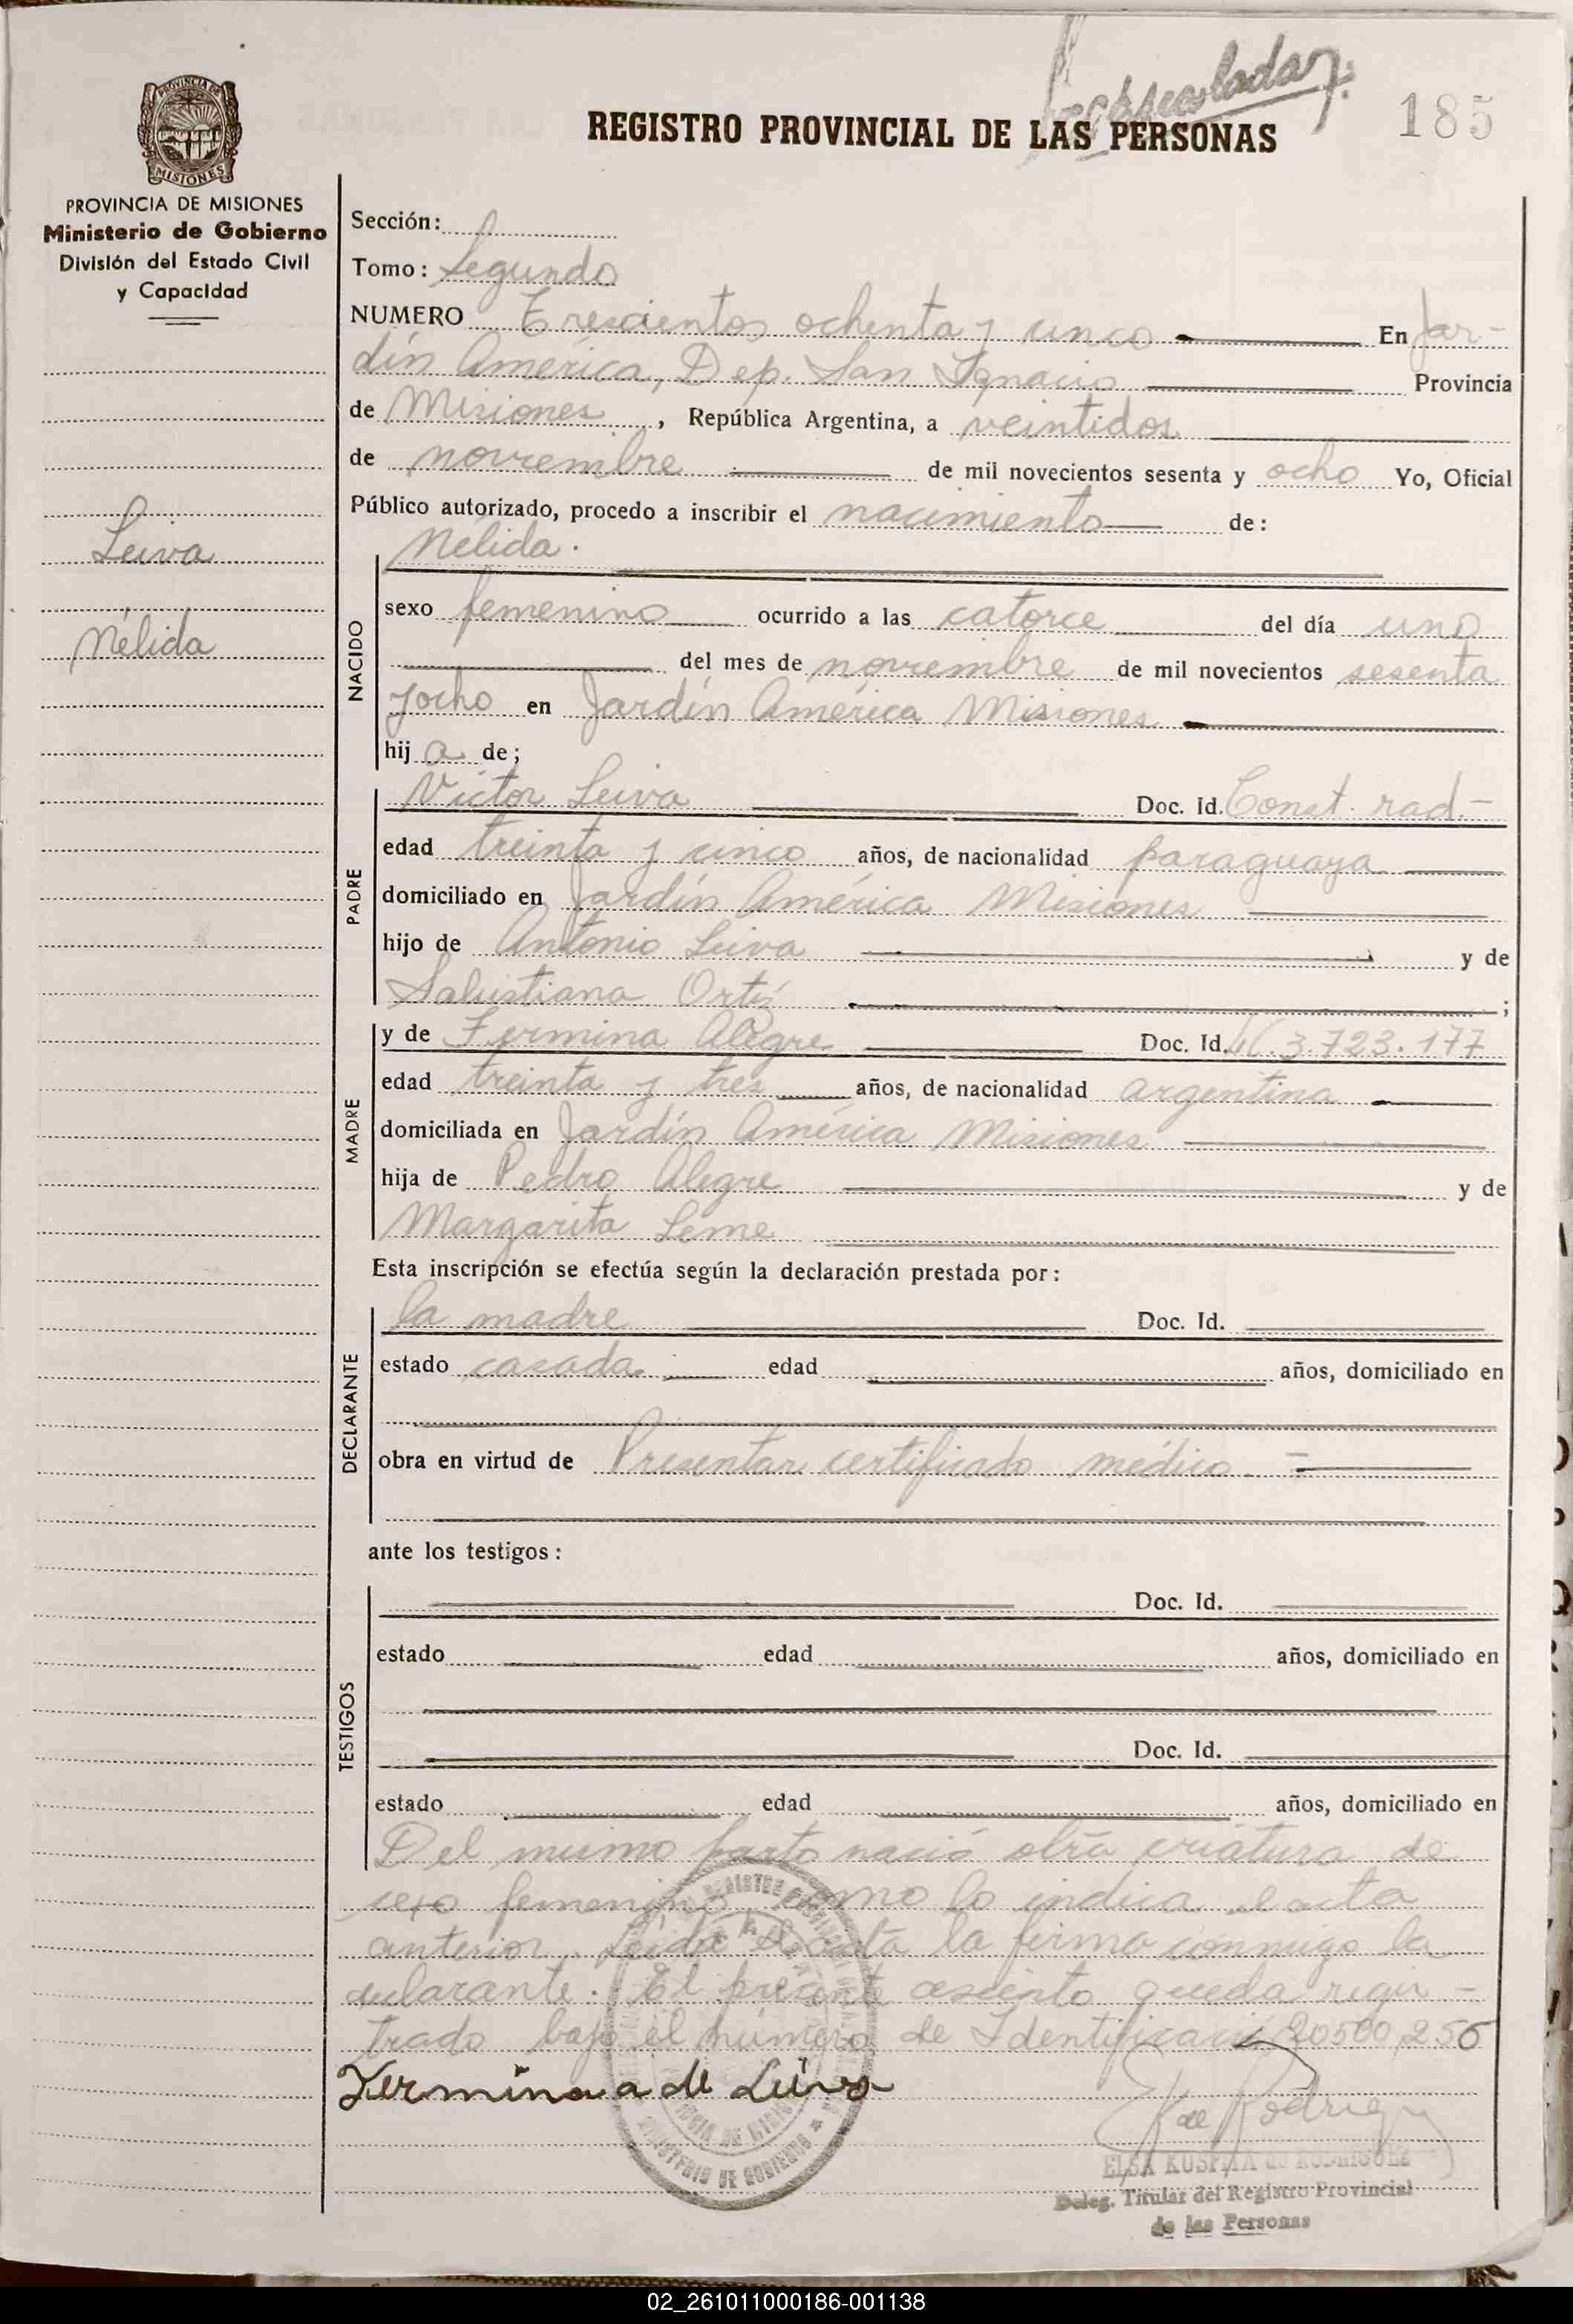 Mecanografiada
185
REGISTRO PROVINCIAL DE LAS PERSONAS
PROVINCIA DE
MISIONES
PROVINCIA DE MISIONES
Ministerio de Gobierno
División del Estado Civil
y Capacidad
Leiva
Nélida
Sección:
Tomo: Segundo
NUMERO Trescientos ochenta y cinco En Jar-
dín América, Dep. San Ignacio Provincia
de Misiones, República Argentina, a veintidos
de noviembre de mil novecientos sesenta y ocho Yo, Oficial
Público autorizado, procedo a inscribir el nacimiento de:
Nélida.
NACIDO
sexo femenino ocurrido a las catorce del día uno
del mes de noviembre de mil novecientos sesenta
y ocho en Jardín América Misiones
hija de;
PADRE
Victor Leiva Doc. Id. Const. rad.-
edad treinta y cinco años, de nacionalidad paraguaya
domiciliado en Jardín América Misiones
hijo de Antonio Leiva y de
Salustiana Ortís ;
MADRE
y de Fermina Alegre Doc. Id. LC. 3.723.177
edad treinta y tres años, de nacionalidad argentina
domiciliada en Jardín América Misiones
hija de Pedro Alegre y de
Margarita Leme
Esta inscripción se efectúa según la declaración prestada por:
DECLARANTE
la madre Doc. Id.
estado casada edad años, domiciliado en
obra en virtud de Presentar certificado médico. =
ante los testigos:
TESTIGOS
Doc. Id.
estado edad años, domiciliado en
Doc. Id.
estado edad años, domiciliado en
Del mismo parto nació otra criatura de
sexo femenino como lo indica el acta
anterior. Leída el acta la firma conmigo la
declarante. El presente asiento queda regis-
trado bajo el número de Identificaci 20500,256
Fermina a de Leiva
K de Rodrigu
MINISTERIO DE GOBIERNO
ELSA de RODRIGUEZ
Deleg. Titular del Registro Provincial
de las Personas
02_261011000186-001138